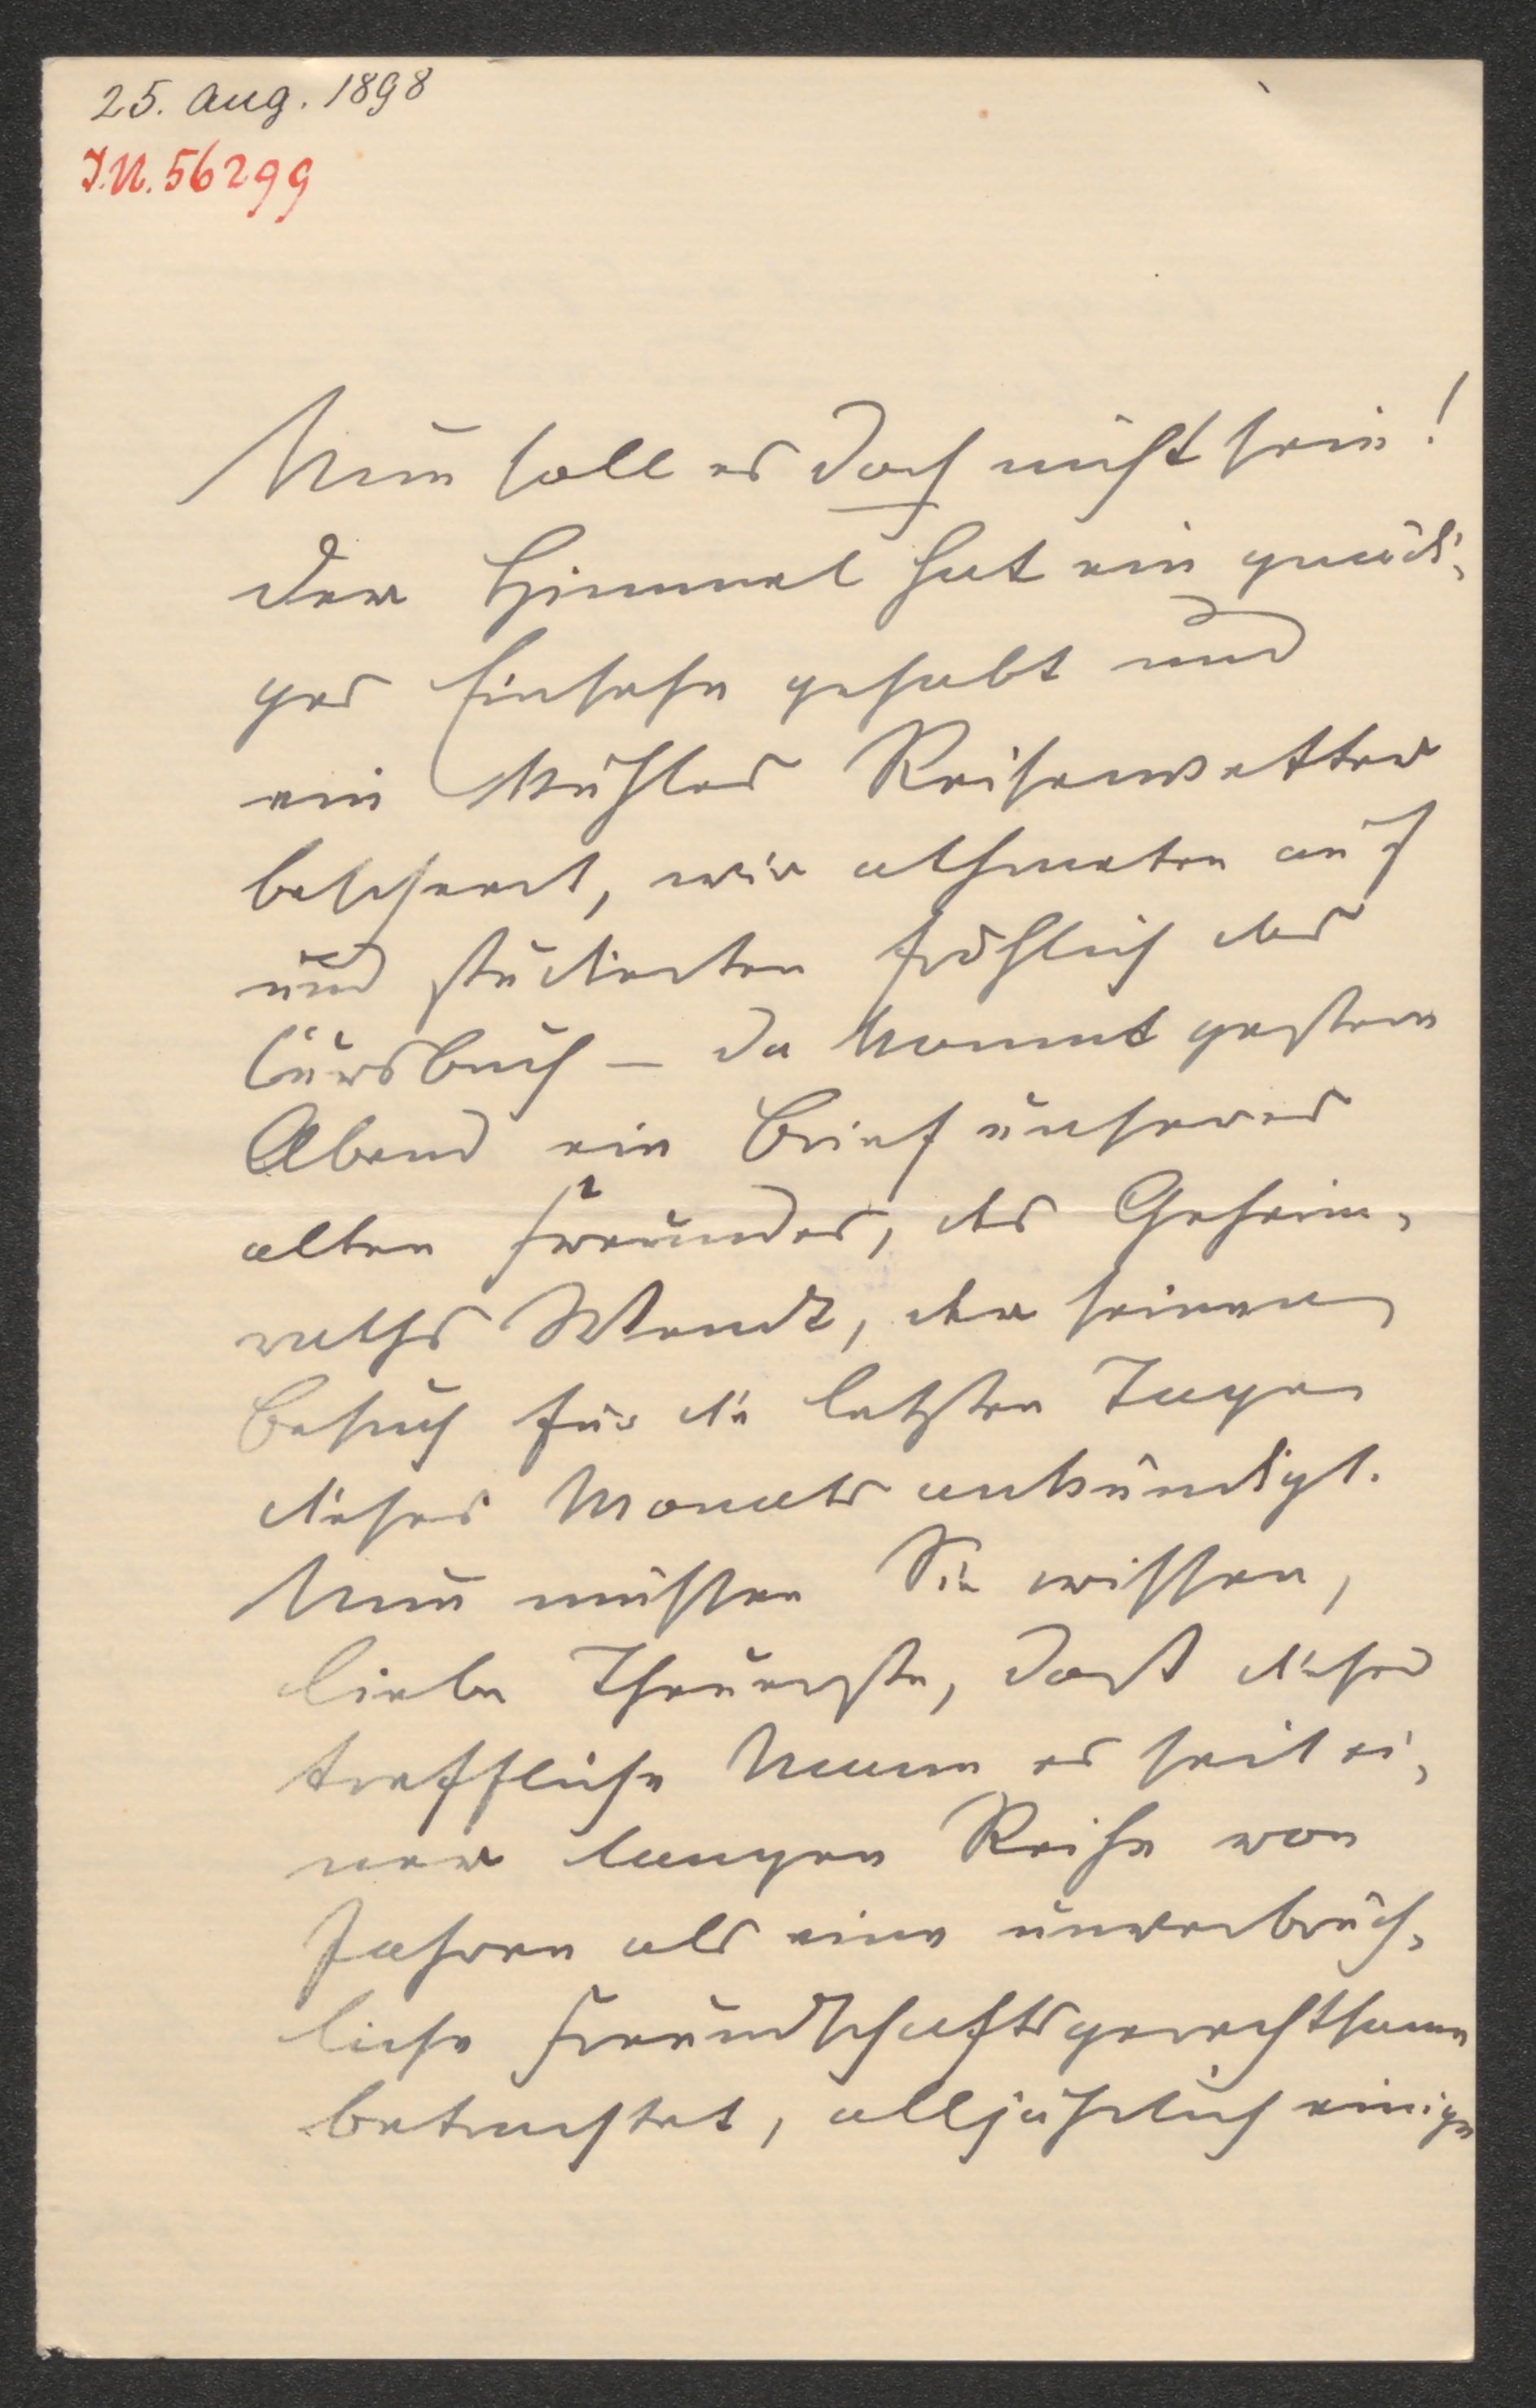 25. Aug. 1898
I.N. 56299
Nun soll es doch nicht sein!
Der Himmel hat ein gnädi-
ges Einsehn gehabt und
ein kühles Reisewetter
beschert, wir athmeten auf
und studierten fröhlich das
Cursbuch – da kommt gestern
Abend ein Brief unseres
alten Freundes, des Geheim-
raths Wendt, der seinen
Besuch für die letzten Tage
dieses Monats ankündigt.
Nun müssen Sie wissen,
liebe Theuerste, daß dieser
treffliche Mann es seit ei-
ner langen Reihe von
Jahren als eine unverbrüch-
liche Freundschaftsgerechtsame
betrachtet, alljährlich einige